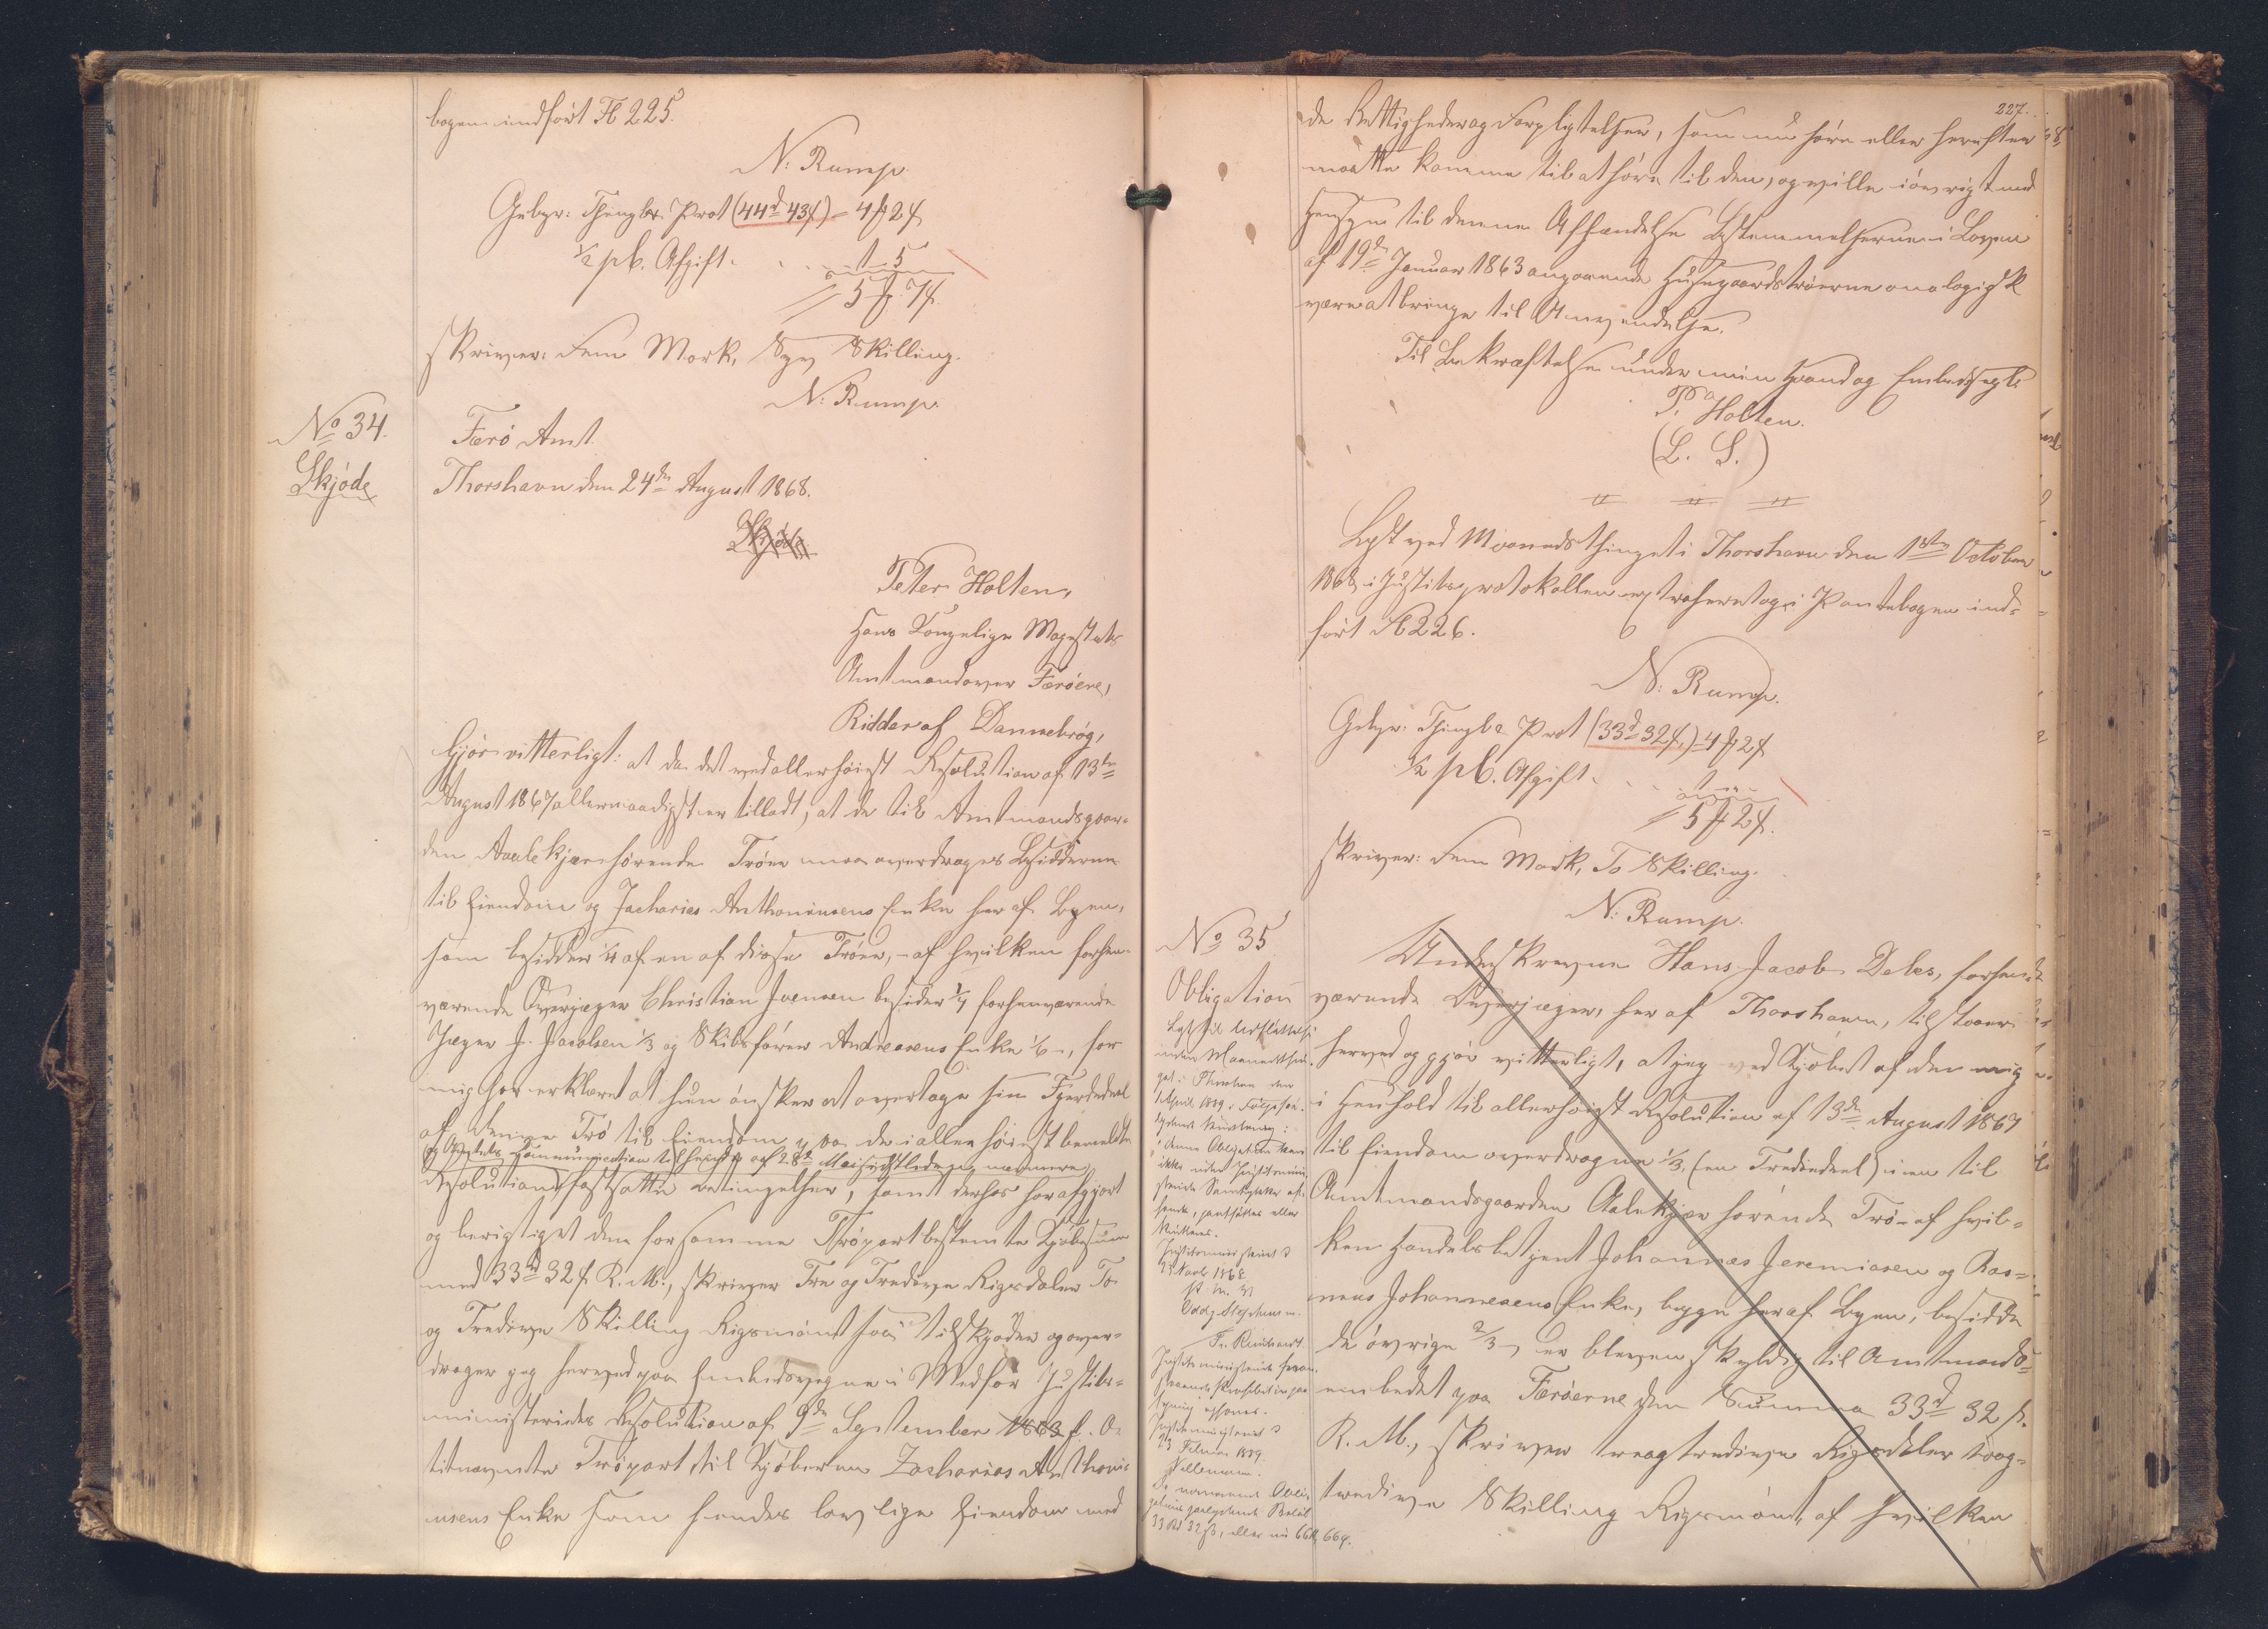 bogen indført Fl 225.
N: Rump.
Gebyr: Thinglæs. Prot (44d 43ß) = 4 ₰ 2ß
½ pC. Afgift. . . 1 - 5
5 ₰ 7ß.
skriver: Fem Mark, Syv Skilling.
N: Rump.
No 34.
Skjöde
Færö Amt.
Thorshavn den 24de August 1868.
Skjöde
Peter Holten,
Hans Kongelige Majestæts
Amtmand over Færöerne,
Ridder af Dannebrog,
Gjör vitterligt: at da det ved allerhöiest Resolution af 13de
August 1867 allernaadigst er tilladt, at de til Amtmandsgaar-
den Aalekjær hörende Tröer maa overdrages Besidderne
til Eiendom og Zacharias Anthoniusens Enke her af Byen,
som besidder ¼ af en af disse Tröer, - af hvilken forhen-
værende Overjæger Christian Joensen besider ¼ forhenværende
Jæger J. Jacobsen ⅓ og Skibsförer Andreasens Enke ⅙ -, for
mig har erklæret at hun önsker at overtage sin Fjerdedeel
af denne Trö til Eiendom paa de i allerhöiest bemeldte
og Communication af 28de Mai
Resolution fastsatte Betingelser, samt derhos har afgjort
og berigtiget den for samme Tröpart bestemte Kjöbesum
med 33d 32ß. R. M., skriver Tre og Tredive Rigsdaler To
og Tredive Skilling Rigsmönt, saa tilskjöder og over-
drager jeg herved paa Embedsvegne i Medför Justits-
ministeriets Resolution af 9de September 1863 f. A.
bitnævnte Tröpart til Kjöberen Zacharias Anthoni-
usens Enke som hendes lovlige Eiendom med
227.
de Rettigheder og Forpligtelser, som nu höre eller herefter
maatte komme til at höre til den, og ville iövrigt med
Hensyn til denne Afhændelse Bestemmelserne i Loven
af 19de Januar 1863 angaaende Huusgaardströerne analogisk
være at bringe til Anvendelse.
Til Bekræftelse under min Haand og Embedssegl.
P. Holten.
(L. S.)
Læst ved Maanedsthinget i Thorshavn den 1ste October
1868, i Justitsprotokollen extraheret og i Pantebogen ind-
fört Fl 226.
N: Rump.
Gebyr: Thinglæs. Prot (33d 32ß.) = 4 ₰ 2ß
½ pC. Afgift. . . 1 - "
5 ₰ 2ß.
skriver: Fem Mark, To Skilling.
N: Rump.
No 35
Obligation
Læst til Udslettelse
inden Maanedsthin-
get i Thorshavn den
1 April 1889
Justitsministeriet
Justitsministeriet
23 Februar 1889
Nellemann.
33 Rd 32 ß, eller nu 66 Kr 66 ø.
Underskrevne Hans Jacob Debes, forhen-
værende Overjæger, her af Thorshavn, tilstaaer
herved og gjör vitterligt, at jeg ved Kjöbet af den mig
i Henhold til allerhöiest Resolution af 13de August 1867
til Eiendom overdragne ⅓ (en Trediedeel) i en til
Amtmandsgaarden Aalekjær hörende Trö - af hvil-
ken Handelsbetjent Johannes Jeremiasen og Ras-
mus Johannesens Enke, begge her af Byen, besidde
de övrige ⅔ -, er bleven skyldig til Amtmands-
embedet paa Færöerne den Summa 33d 32 ß.
R. M., skriver tre og tredive Rigsdaler to og
tredive Skilling Rigsmönt, af hvilken